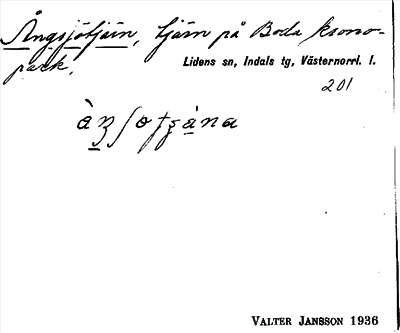 Ångsjötjärn, tjärn på Boda krono-
park.
Lidens sn, Indals tg, Västernorrl. l.
201
VALTER JANSSON 1936